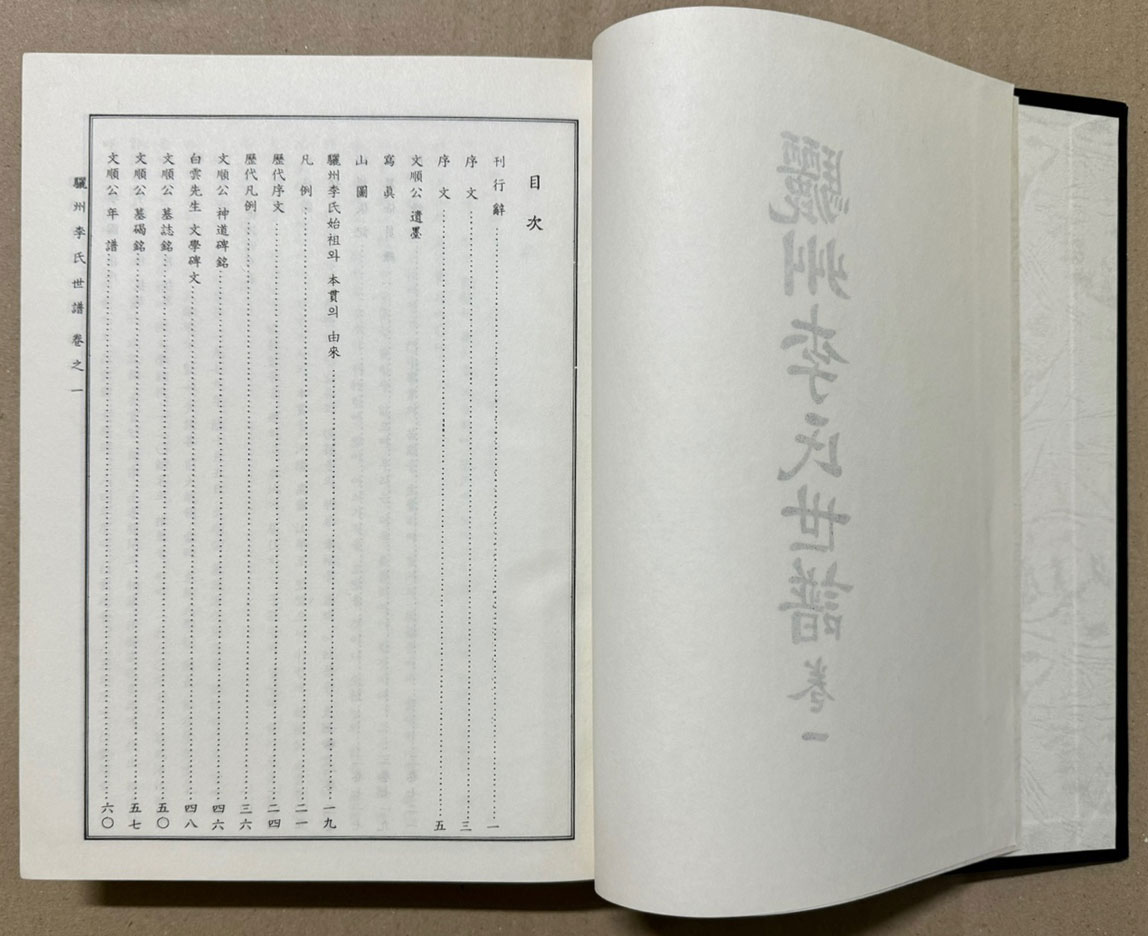 驪州李氏世譜 卷一
目次
刊行辭 一
序文 三
序文 五
文順公 遺墨
寫眞
山圖
驪州李氏始祖와 本貫의 由來 一九
凡例 二一
歷代序文 二四
歷代凡例 三六
文順公 神道碑銘 四六
白雲先生 文學碑文 四八
文順公 墓誌銘 五〇
文順公 墓碣銘 五七
文順公 年譜 六〇
驪州李氏世譜 卷之一